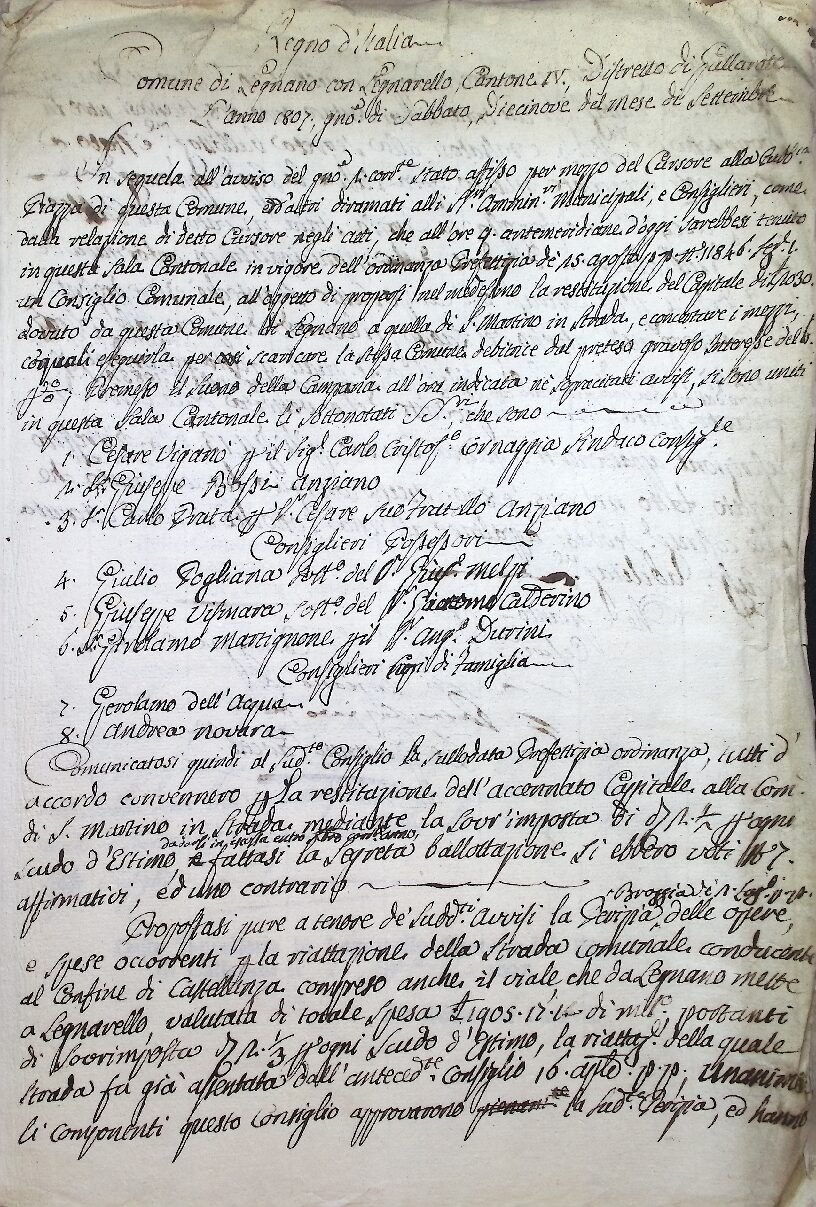 Regno d'Italia
Comune di Legnano con Legnarello, Cantone IV, Distretto di Gallarate
L'anno 1807, gno. di Sabbato, Diecinove del mese di Settembre
In sequela all'avviso del gno. 1. corr.e stato affisso per mezzo del Cursore alla Pubb.ca
Piazza di questa Comune, ed altri diramati alli SS.ri Ammin.ri Municipali, e Consiglieri, come
dalla relazione di detto Cursore negli atti, che all'ore 9. antemeridiane d'oggi sarebbesi tenuto
in questa Sala Cantonale in vigore dell'ordinanza Prefettizia de' 15. agosto p.p. N. 11846. Sez. 1.
un Consiglio Comunale, all'oggetto di proporsi nel medesimo la restituzione del Capitale di
dovuto da questa Comune di Legnano a quella di S. Martino in Strada, e concertare i mezzi,
coi quali eseguirla per così scaricare la stessa Comune debitrice dal preteso gravoso Interesse del
Premesso il suono della Campana all'ora indicata ne' sopracitati avvisi, si sono uniti
in questa Sala Cantonale li sottonotati SS.ri, che sono
1. Cesare Viganò p il Sig.r Carlo Cristof.o Cornaggia Sindaco Consig.le
2. S.r Giuseppe Bossi Anziano
3. S.r Carlo Prata p S.r Cesare suo Fratello Anziano
Consiglieri Possessori
4. Giulio Pogliana sost.o del S.r Gius.e Melzi
5. Giuseppe Vismara sost.o del S.r Giacomo Calderino
6. S.r Gerolamo Martignone p il S.r Ang.o Durini
Consiglieri capi di famiglia
7. Gerolamo dell'Acqua
8. Andrea Novara
Comunicatasi quindi al Sud.to Consiglio la sullodata Prefettizia ordinanza, tutti d'
accordo convennero p la restituzione dell'accennato Capitale alla Com.
di S. Martino in Strada mediante la Sovr'imposta di d 2. 1/2 p ogni
scudo d'Estimo e fattasi la segreta ballottazione si ebbero voti N. 7.
affirmativi, ed uno contrario
Propostasi pure a tenore de' sudd.ti avvisi la Perizia delle opere,
e spese occorrenti p la riattazione della Strada comunale conducente
al Confine di Castellanza compreso anche il viale che da Legnano mette
a Legnarello, valutata di totale spesa 1905. 17. di mil.o, portanti
di Sovrimposta d 2. 1/3 p ogni Scudo d'Estimo, la riattaz.e della quale
strada fu già assentata dall'anteced.te Consiglio 16. aple. p.p., unanimi
li componenti questo Consiglio approvarono la sud.a Perizia, ed hanno